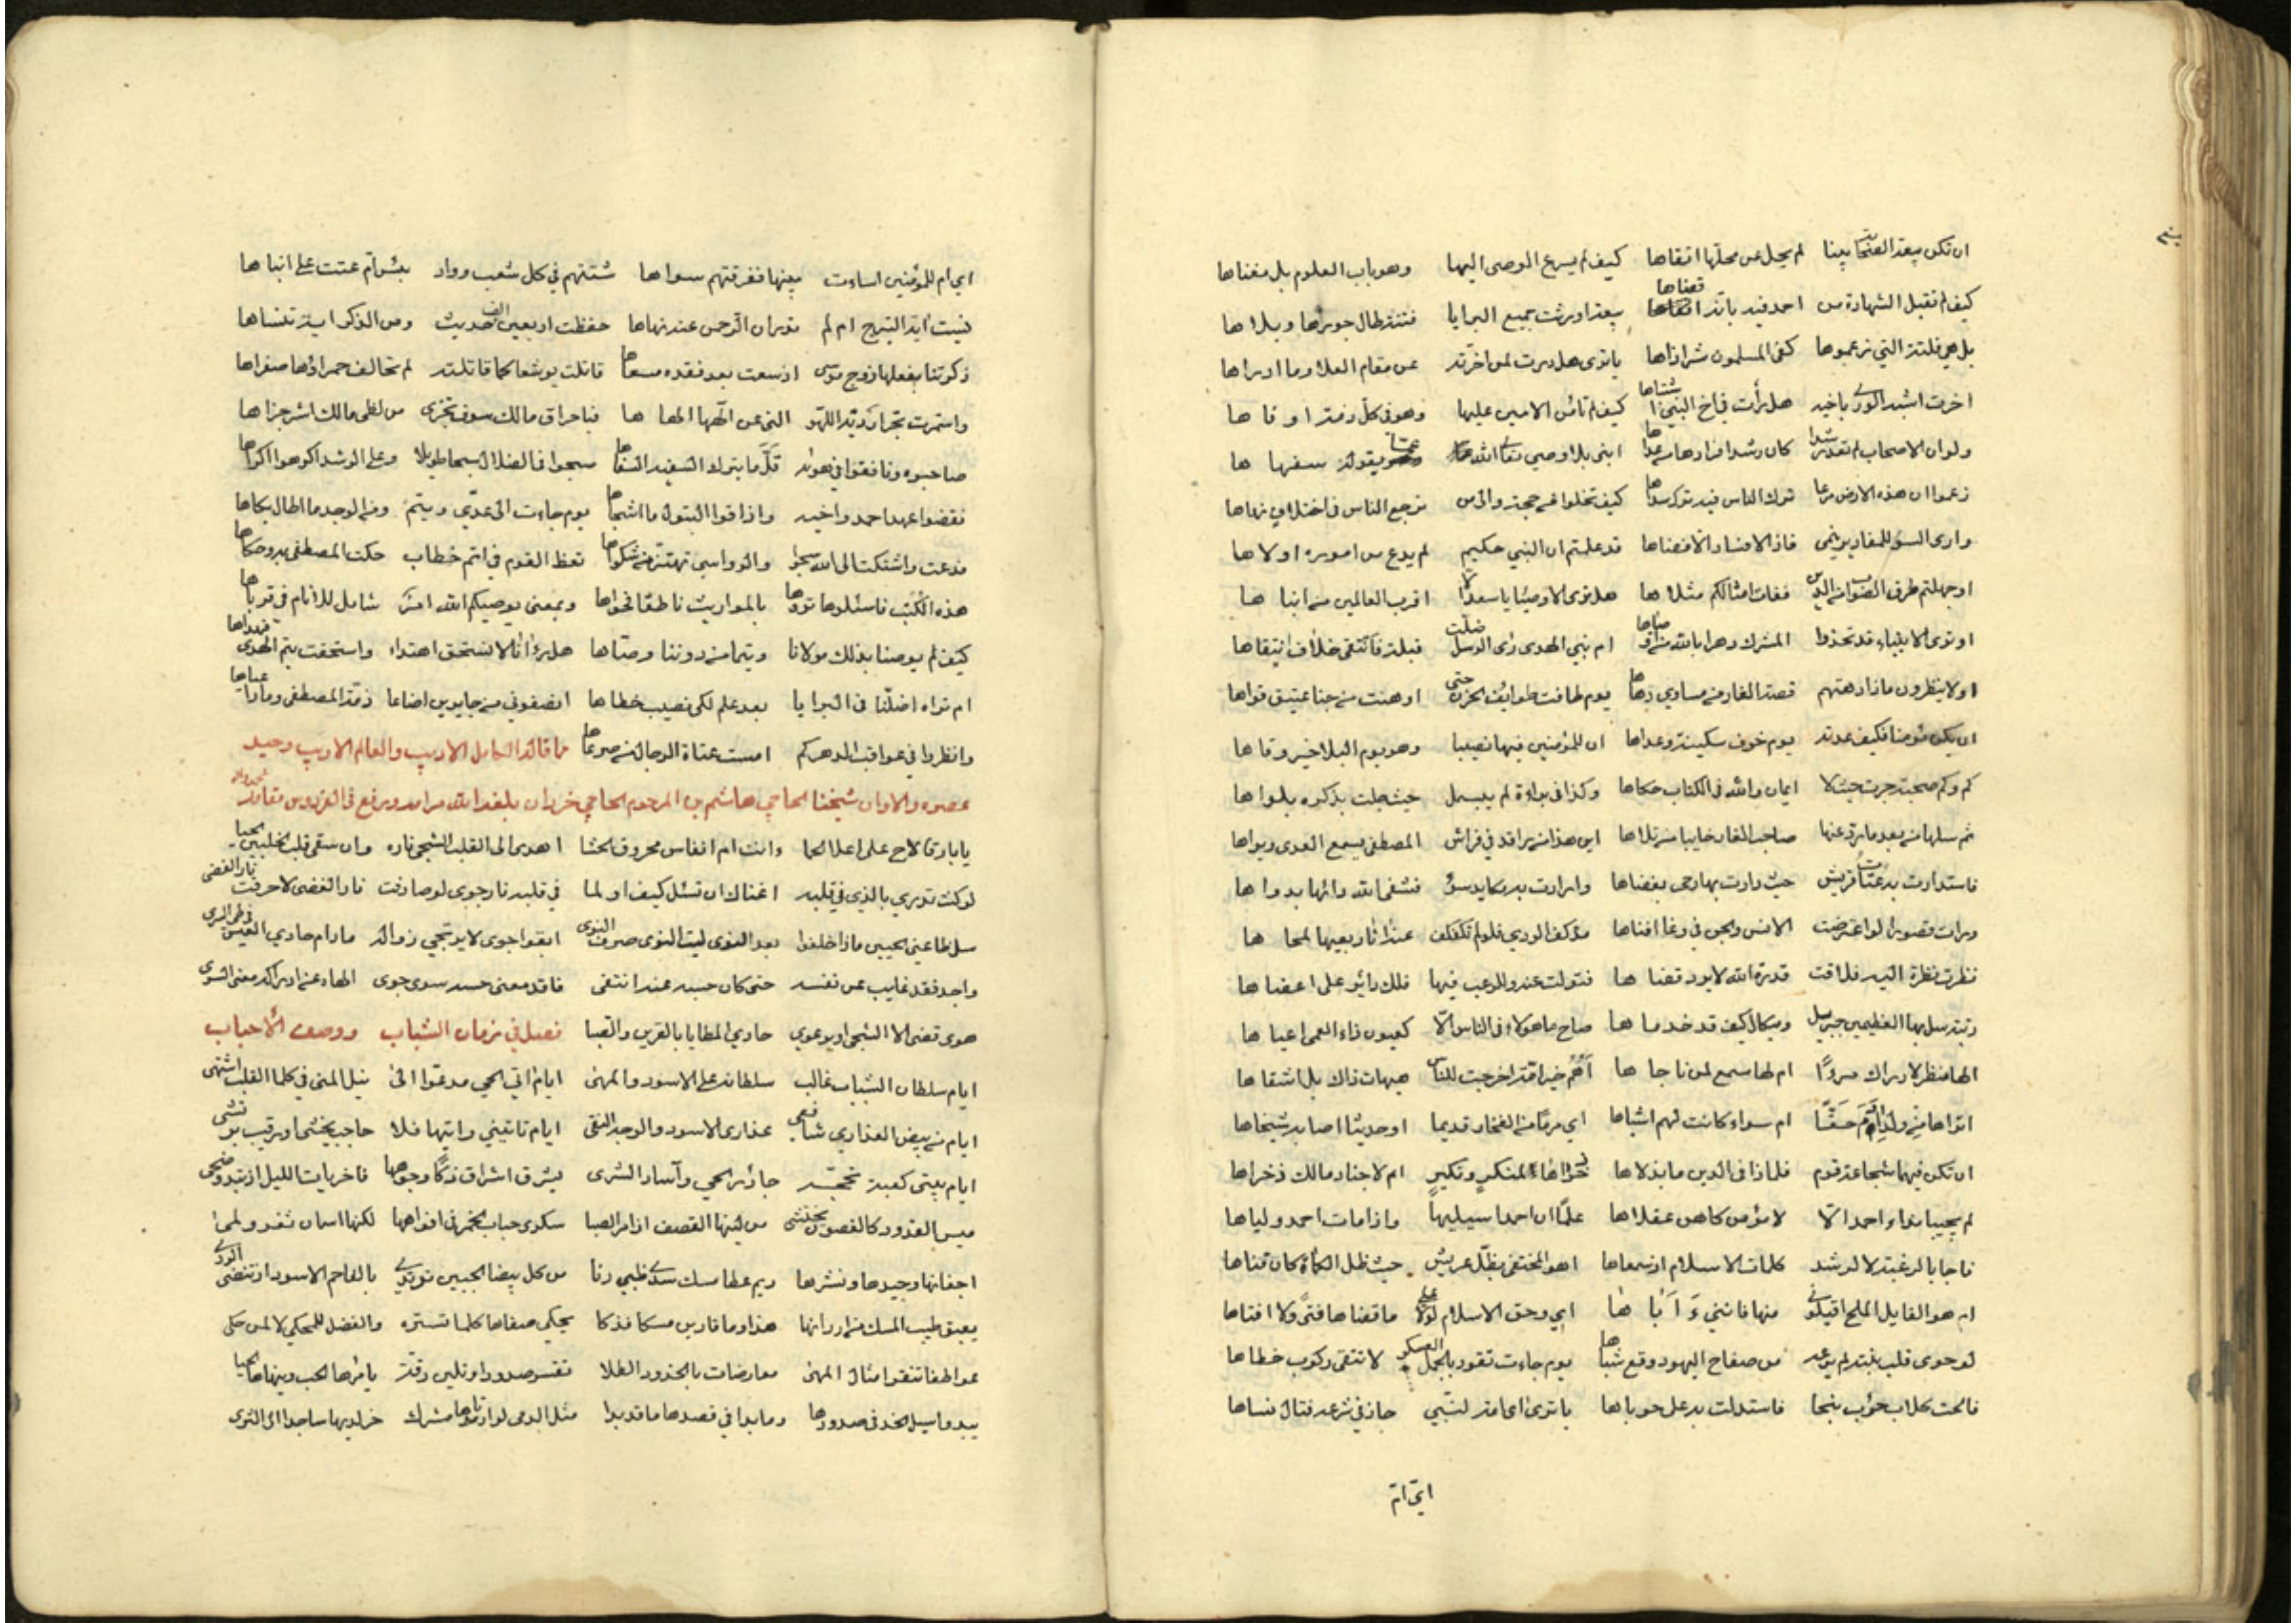 ان تكن بيعة الصحابة دينا لم يحل عن محلها اتقاها كيف لم يسرع الوصي اليها وهو باب العلوم بل مغناها
كيف لم تقبل الشهادة من احمد فيه بانه اقضاها بيعة اورثت جميع البرايا فتنة طال جورها وبلاها
بل هي فلتة التي زعموها كفى المسلمون شر اذاها يا ترى هل درت لمن اخرته عن مقام العلا وما ادراها
اخرت اشبه الورى باخيه هل رأت في اخ النبي اشتباها كيف لم تأمن الامين عليها وهو في كل ذمة اوفاها
ولو ان الاصحاب لم تعد رشدا كان رشدا فرارها من عداها انبي بلا وصي تعالى الله عما يقوله سفهاها
زعموا ان هذه الارض مرعا ترك الناس فيه ترك سواها كيف تخلوا من حجة والى من ترجع الناس في اختلاف نهاها
وارى السؤ للمقادير ينمى فاذا لا فساد الا قضاها قد علمتم ان النبي حكيم لم يدع من اموره اولاها
او جهلتم طرق الصواب من الدين ففات امثالكم مثلاها هل ترى الاوصياء يا سعد الا اقرب العالمين من انباها
او ترى الانبياء قد تخذوا المشرك دهرا بالله ام نبي الهدى رأى الرسل ضلت قبله فاقتفى خلاف اقتفاها
اولا ينظرون ماذا دهتهم قصة الغار من مساوي دهاها يوم طافت طوائف الحزن حتى اوهنت من جنا عتيق قواها
ان يكن مؤمنا فكيف عدته يوم خوف سكينة وعداها ان للمؤمنين فيها نصيبا وهو يوم البلا خير وقاها
كم وكم صحبة جرت حيث لا ايمان والله في الكتاب حكاها وكذا في براءة لم يبسمل حيث جلت بذكره بلواها
ثم سلها من بعد مارد عنها صاحب الغار خايبا من تلاها اين هذا من راقد في فراش المصطفى يسمع العدى ويراها
فاستدارت به عتاة قريش حيث دارت بها رحى بغضاها وارادت به مكايد سؤ فشفى الله داءها بدواها
ورات قصورا لو اعترضت الانس والجن في وغا افناها مد كف الردى فلولم تكفكف عنه اثار بغيها لمحاها
نظرت نظرة اليه فلاقت قدرة الله لا يرد قضاها فتولت عنه وللرعب فيها فلك دائر على اعضاها
رتبة سل بها العظيمين جبريل وميكال كيف قد خدماها صاح ما هؤلاء في الناس الا كعيون داء العمى اعياها
الها منظر لادراك مرءًا ام لها سمع لمن ناجاها أهم خير امة اخرجت للناس هيهات ذاك بل اشقاها
اتراها من ولد ادم حقا ام سواء كانت لهم اشباها اي مرمى من الفخار قديما او حديثا اصابه شيخاها
ان تكن فيهما شجاعة قوم فلماذا في الدين ما بذلاها ذخراها لمنكر ونكير ام لاجناد مالك ذخراها
لم يجيبا نداء احمد الا لامر من كاهن عقلاها علما ان احمدا سيليها واذا مات احمد ولياها
فاجابا لرغبة لا لرشد كلمات الاسلام اذ سمعاها اهو المختفى بظل عريش حيث ظل الكماة كان قناها
ام هو القايل الملح اقيلوني منها فانني أأباها اي وحق الاسلام لولا علي ما قضاها فتى ولا افتاها
لو حوى قلب بنته لم يرعه من صفاح اليهود وقع شباها يوم جاءت تقود بالجمل العسكر لا تتقى ركوب خطاها
فالحت كلاب حؤب بنحا فاستدلت به على حوباها يا ترى اي امة لنبي جاز في شرعه قتال نساها
اي ام
اي ام للمؤمنين اساءت ببنيها ففرقتهم سواها شتتهم في كل شعب وواد بئس ام عتت على ابناها
نسيت اية التبرج ام لم تدر ان الرحمن عنه نهاها حفظت اربعين الف حديث ومن الذكر اية تنساها
ذكرتنا بفعلها زوج موسى اذ سعت بعد فقده مسعاها قاتلت يوشعا كما قاتلته لم تخالف حمراؤها صفراها
واستمرت تجر اردية اللهو التي عن الهها الهاها فباحراق مالك سوف تجزى من لظى مالك اشر جزاها
صاحبوه ونافقوا في هواه قل ما يترك السفيه السفاها سبحوا في الضلال سبحا طويلا وعلى الرشد اكرهوا اكراها
نقضوا عهد احمد واخيه واذاقوا البتول ما اشجاها يوم جاءت الى عدي وتيم ومن الوجد ما اطال بكاها
فدعت واشتكت الى الله شجوا والرواسي تهتز من شكواها تعظ القوم في اتم خطاب حكت المصطفى به وحكاها
هذه الكتب فاسئلوها تروها بالمواريث ناطقا فحواها وبمعنى يوصيكم الله امر شامل للانام في قرباها
كيف لم يوصنا بذلك مولانا وتيما من دوننا وصاها هل رآنا لا نستحق اهتداء واستحقت تيم الهدى فهداها
ام تراه اضلنا في البرايا بعد علم لكي نصيب خطاها انصفوني من جايرين اضاعا ذمة المصطفى وما رعياها
وانظروا في عواقب الدهر كم امست عتاة الرجال من صرعاها مما قاله الكامل الاديب والعالم الاريب وحيد
عصره والاوان شيخنا الحاجي هاشم بن المرحوم الحاجي خردان بلغه الله مرامه ورفع في الفردوس مقامه
يا بارقا لاح على اعلا الحما وانت ام انفاس محروق الحشا اهدى الى القلب الشجي ناره وان سقى قلب الخليين الحيا
لو كنت تدري بالذي في قلبه اغناك ان تسئل كيف او لما في قلبه نار جوى لو صادفت نار الغضى لاحرقت نار الغضى
سل ظاعني الحبيبين ماذا خلفوا بعد النوى ليت النوى صرف النوى ابقوا جوى لا يرتجى زواله مادام حادي العيس في طي البرى
واجد فقد غايب عن نفسه حتى كان حسه عنه انتفى فاقد معنى حسه سوى جوى الهاه عن ادراكه معنى السوى
هوى قضى الا الشجى او يرعوي حادي المطايا بالقرين والصبا فصل في زمان الشباب ووصف الأحباب
ايام سلطان الشباب غالب سلطانه على الاسود والمهى ايام اقى الحي مدعوا الى نيل المنى في كلما القلب اشتهى
ايام من بيض العذاري شافعي عذارى الاسود والوجه النقى ايام تاتيني واتيها فلا حاجب يخشى او رقيب
ايام بيتي كعبة تحجه جاذر الحي وآساد الشرى يشرق اشراق ذكا وجوهها فاخريات الليل اذ تبدو ضحى
ميس القدود كالغصون يختشى من لينها القصف اذا مر الصبا سكرى حباب الخمر في افواهها لكنها اسنان ثغر ولمى
اجفانها وجيدها ونشرها ريم عطا مسك سدى ظبي رنا من كل بيضا الجبين ترتدى بالفاحم الاسود اذ تنضى الردى
يعبق طيب المسك من اردانها هذا وما قاربن مسكا فذكا يحكى صفاها كلما تستره والفضل للمحكي لا لمن حكى
عواطفا تنقوا مثال المهى معارضات بالخدود الطلا تقسو صدورا وتلين رقة يامرها الحب وينهاها الحيا
يبدو اسيل الخد في صدورها وما بدا في قصدها ما قد بدا مثل الدمى لو ارها مشرك خر لديها ساجدا الى الثرى